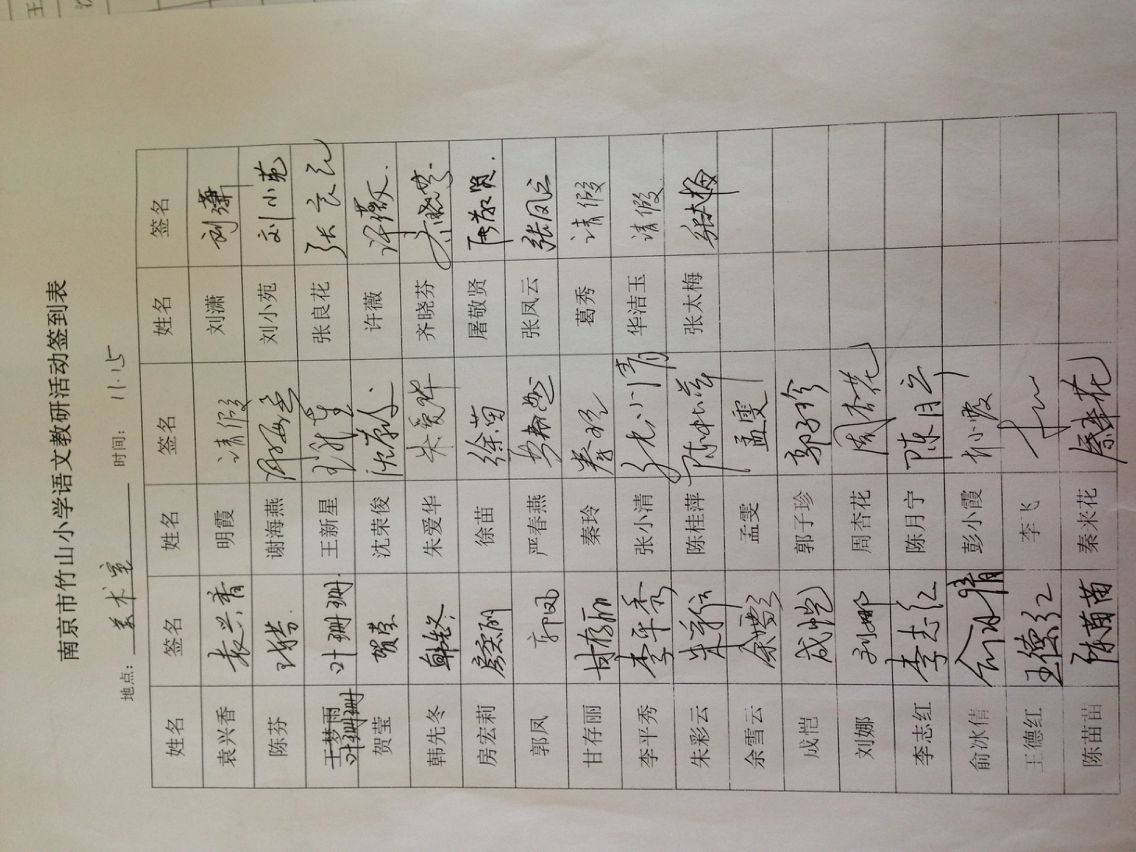 南京市竹山小学语文教研活动签到表
地点: 美术室 时间: 11.25
姓名 签名 姓名 签名 姓名 签名
袁兴香 袁兴香 明霞 请假 刘潇 刘潇
陈芬 陈芬 谢海燕 刘小苑 刘小苑
王梦雨 叶珊珊 叶珊珊 王新星 张良花
贺莹 贺莹 沈荣俊 许薇 许薇
韩先冬 韩先冬 朱爱华 朱爱华 齐晓芬 齐晓芬
房宏莉 徐苗 徐苗 屠敬贤 屠敬贤
郭凤 郭凤 严春燕 张凤云 张凤云
甘存丽 甘存丽 秦玲 秦玲 葛秀 请假
李平秀 李平秀 张小清 张小清 华洁玉 请假
朱彩云 陈桂萍 张太梅 张太梅
余雪云 余雪云 孟雯 孟雯
成恺 成恺 郭子珍 郭子珍
刘娜 刘娜 周杏花 周杏花
李志红 李志红 陈月宁 陈月宁
俞冰倩 俞冰倩 彭小霞
王德红 王德红 李飞
陈苗苗 陈苗苗 秦来花 秦来花